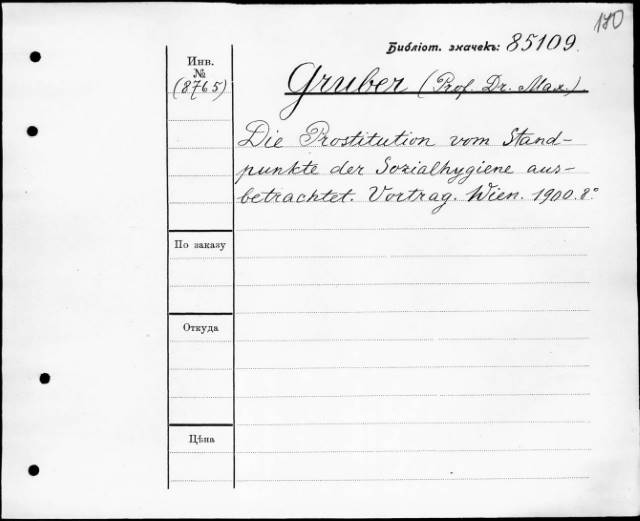 170
Библіот. значекъ: 85109.
Инв.
№
(8765)
Gruber (Prof. Dr. Max.).
Die Prostitution vom Stand-
punkte der Sozialhygiene aus-
betrachtet. Vortrag. Wien. 1900. 8°
По заказу
Откуда
Цѣна